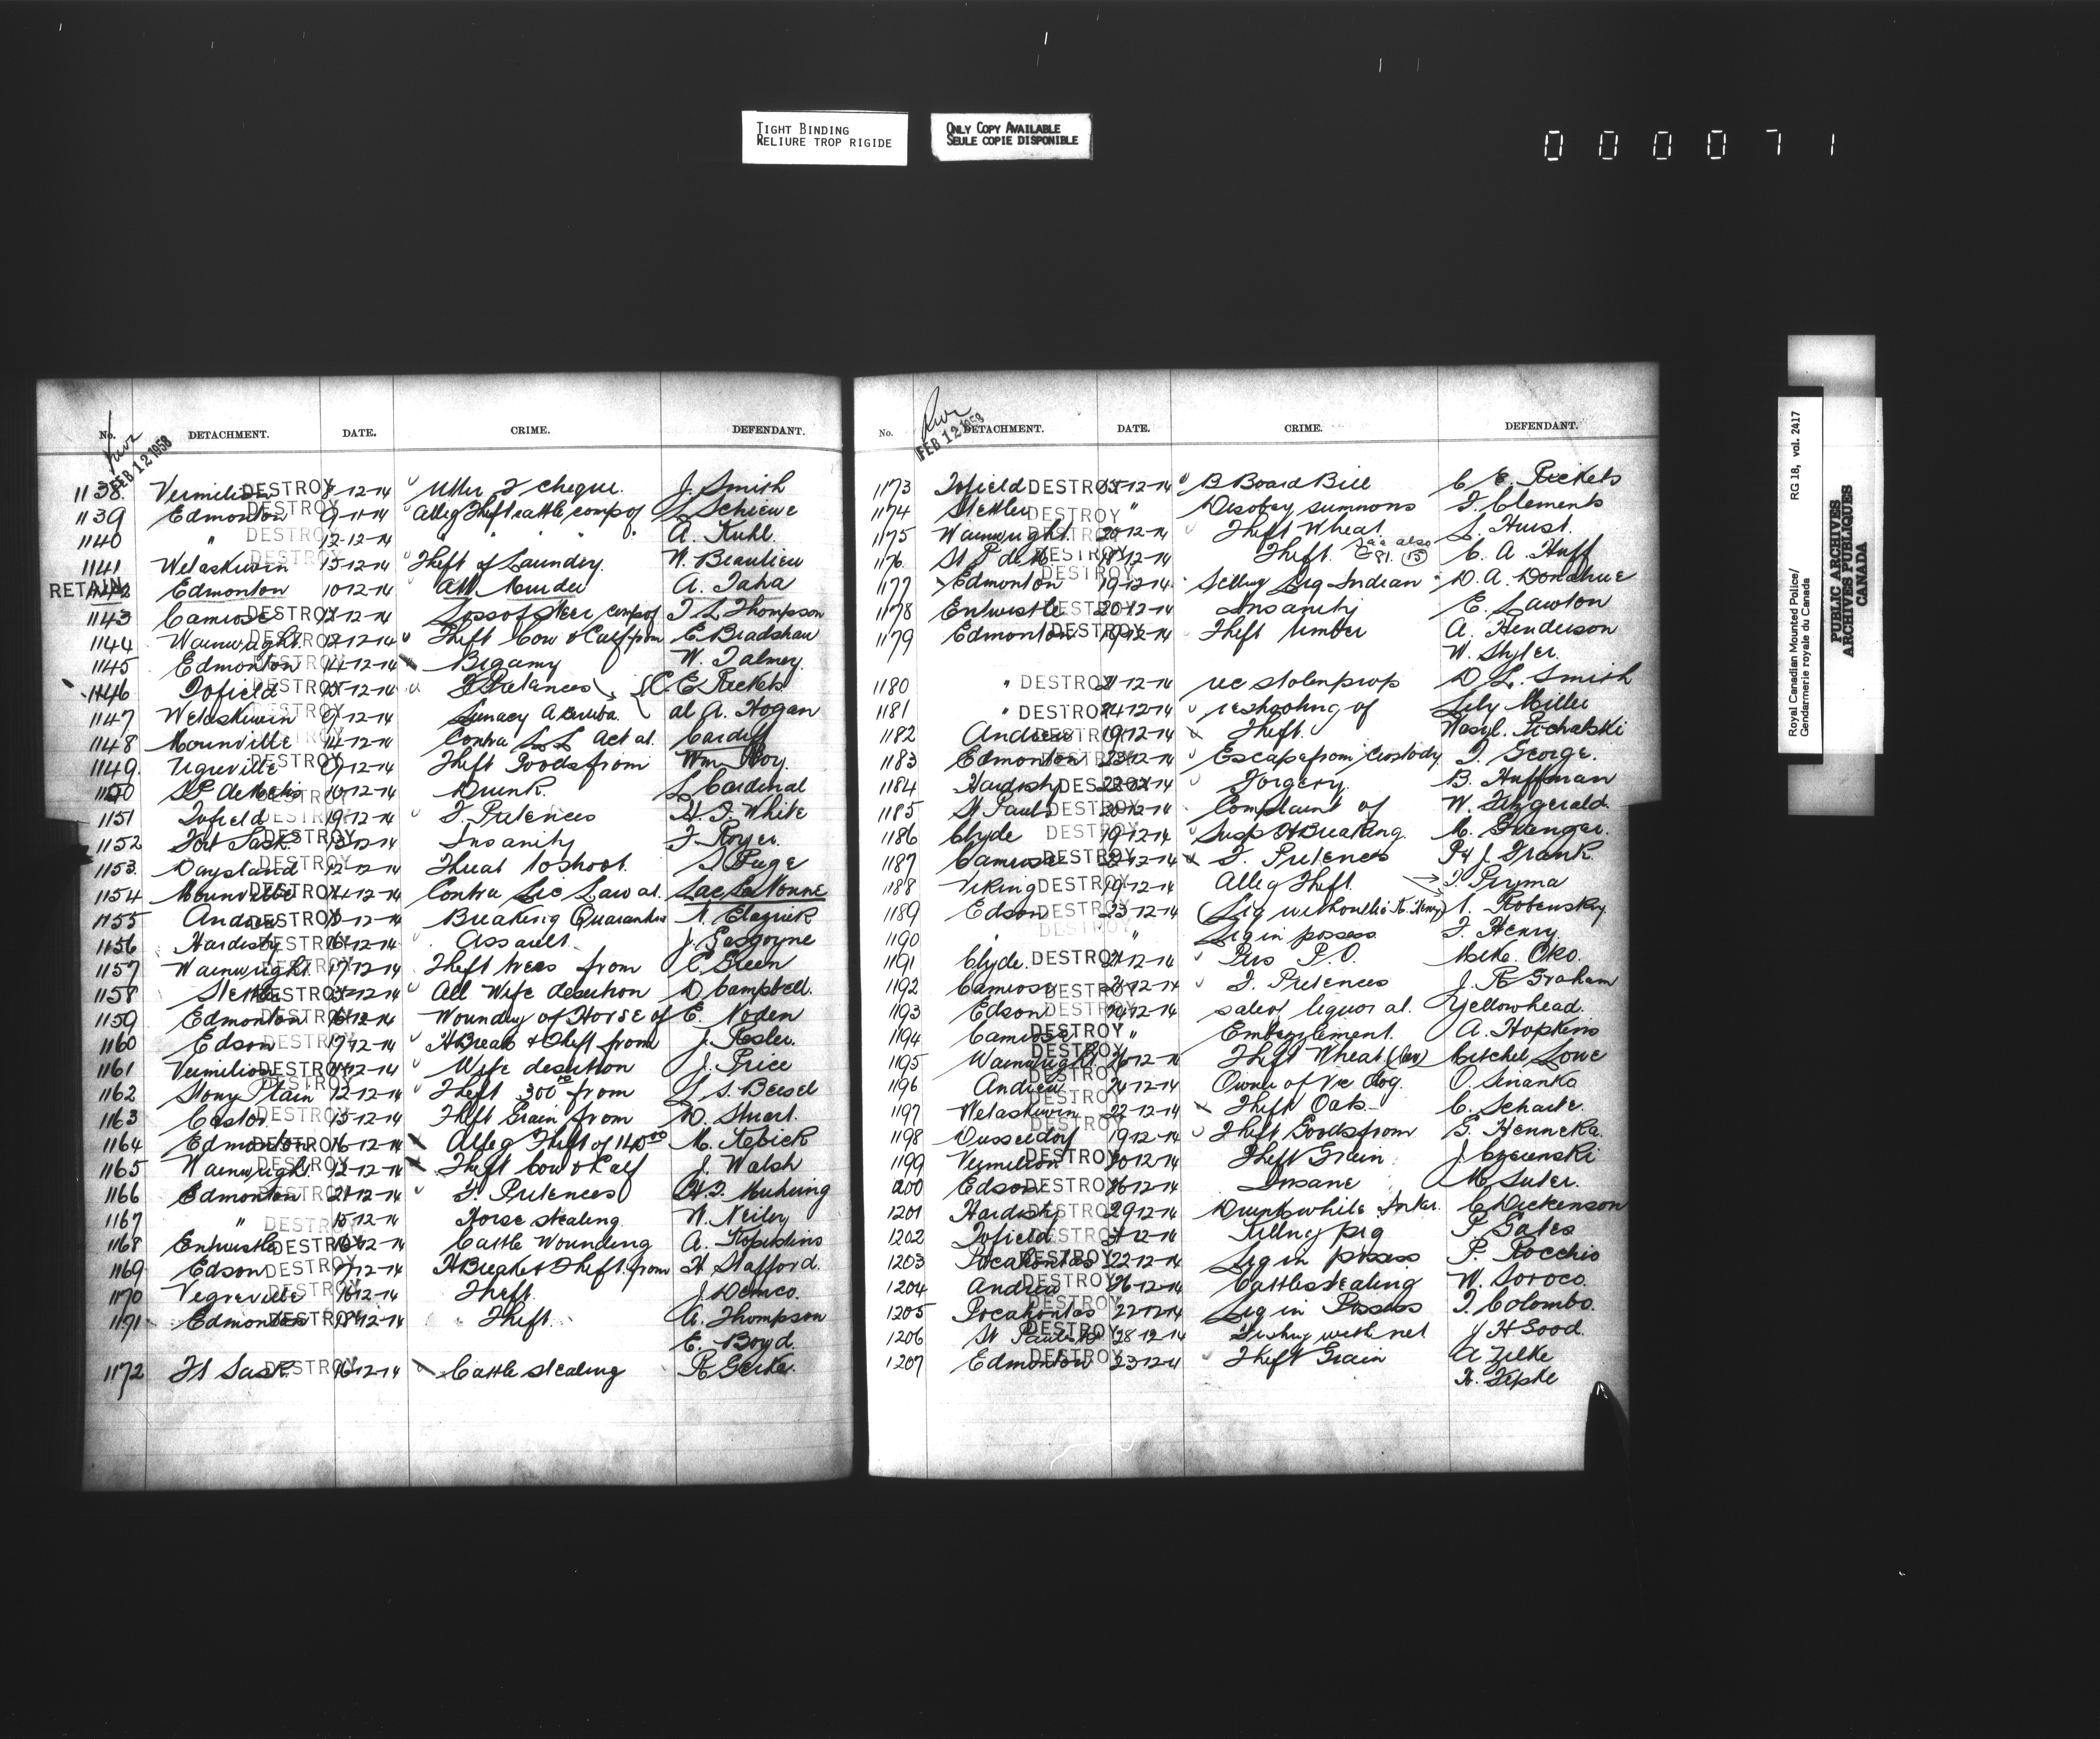 TIGHT BINDING
RELIURE TROP RIGIDE
ONLY COPY AVAILABLE
SEULE COPIE DISPONIBLE
000071
FEB 12 1958
No. DETACHMENT. DATE. CRIME. DEFENDANT.
1138 Vermilion DESTROY 8-12-14 Utter F cheque. J. Smith
1139 Edmonton DESTROY 9-11-14 Alleg Theft cattle comp of L Schiewe
1140 " DESTROY 12-12-14 " " " A. Kuhl.
1141 Wetaskiwin DESTROY 13-12-14 Theft of Laundry. W. Beaulieu
RETAIN 1142 Edmonton 10-12-14 Att Murder A. Taha
1143 Camrose DESTROY 12-12-14 Loss of Steer comp of T. L. Thompson
1144 Wainwright DESTROY 12-12-14 Theft Cow & Calf from E Bradshaw
1145 Edmonton DESTROY 14-12-14 Bigamy W. Talmey.
1146 Tofield DESTROY 15-12-14 F Pretences C. E. Rickets
1147 Wetaskiwin DESTROY 9-12-14 Lunacy A. al A. Hogan
1148 Mounville DESTROY 14-12-14 Contra L L Act al. Cardiff
1149 Vegreville DESTROY 9-12-14 Theft Goods from Wm Roy.
1150 St P. de Metis DESTROY 10-12-14 Drunk. L Cardinal
1151 Tofield DESTROY 19-12-14 F. Pretences H. T. White
1152 Fort Sask. DESTROY 13-12-14 Insanity F Royer.
1153 Daysland DESTROY 12-12-14 Threat to shoot. S Page
1154 Mounville DESTROY 14-12-14 Contra Lic Law al. Lac La Nonne
1155 Andrew DESTROY 11-12-14 Breaking Quarantine
1156 Hardisty DESTROY 16-12-14 Assault. J. Gasgoyne
1157 Wainwright DESTROY 17-12-14 Theft trees from C. Green
1158 Stettler DESTROY 15-12-14 All Wife desertion D Campbell.
1159 Edmonton DESTROY 16-12-14 Wounding of Horse of E. Noden
1160 Edson DESTROY 17-12-14 H Break & Theft from J. Rosler.
1161 Vermilion DESTROY 14-12-14 Wife desertion J. Price
1162 Stony Plain DESTROY 12-12-14 Theft 300 00 from L. S. Beisel
1163 Castor DESTROY 15-12-14 Theft Grain from D. Stuart.
1164 Edmonton DESTROY 16-12-14 Alleg Theft of 140 00 M. Kebick
1165 Wainwright DESTROY 12-12-14 Theft Cow & Calf J. Walsh
1166 Edmonton DESTROY 21-12-14 F. Pretences H. F. Muhring
1167 " DESTROY 15-12-14 Horse stealing W. Neiley
1168 Entwistle DESTROY 16-12-14 Cattle Wounding A. Kopidins
1169 Edson DESTROY 17-12-14 H Break & Theft from H Stafford.
1170 Vegreville DESTROY 16-12-14 Theft. J. Demco.
1171 Edmonton DESTROY 18-12-14 Theft. A. Thompson
E. Boyd.
1172 Ft Sask DESTROY 16-12-14 Cattle stealing R Gerke.
FEB 12 1958
No. DETACHMENT. DATE. CRIME. DEFENDANT.
1173 Tofield DESTROY 15-12-14 B Board Bill C. E. Rickets
1174 Stettler DESTROY " Disobey summons F. Clements
1175 Wainwright DESTROY 20-12-14 Theft Wheat. S. Hurst.
1176 St P. de M DESTROY 18-12-14 Theft. See also G 81. (15) C. A. Huff
1177 Edmonton DESTROY 19-12-14 Selling Liq Indian D. A. Donahue
1178 Entwistle DESTROY 20-12-14 Insanity E. Lawton
1179 Edmonton DESTROY 19-12-14 Theft timber A. Henderson
W. Styler.
1180 " DESTROY 21-12-14 rec stolen prop D L. Smith
1181 " DESTROY 24-12-14 re shooting of Lily Miller
1182 Andrew DESTROY 19-12-14 Theft. Wasyl.
1183 Edmonton DESTROY 23-12-14 Escape from Custody T. George.
1184 Hardisty DESTROY 22-12-14 Forgery. B. Huffman
1185 St Paul DESTROY 20-12-14 Complaint of W. Fitzgerald.
1186 Clyde DESTROY 19-12-14 Susp H Breaking. M. Granger.
1187 Camrose DESTROY 21-12-14 F. Pretences P & J. Frank.
1188 Viking DESTROY 19-12-14 Alleg Theft. T. Pryma
1189 Edson DESTROY 23-12-14 (Liq without lic K. Henry) N. Robensky.
1190 " DESTROY " Liq in possess F. Henry.
1191 Clyde. DESTROY 21-12-14 Pers P.O. Mike Oko.
1192 Camrose DESTROY 21-12-14 F. Pretences J. R Graham
1193 Edson DESTROY 24-12-14 sale of liquor al. Yellowhead.
1194 Camrose DESTROY " Embezzlement. A. Hopkins
1195 Wainwright DESTROY 26-12-14 Theft Wheat Mitchel Lowe
1196 Andrew DESTROY 24-12-14 Owner of Vic dog. O. Sinanko
1197 Wetaskiwin DESTROY 22-12-14 Theft Oats C. Scharte.
1198 Dusseldorf DESTROY 19-12-14 Theft Goods from G. Henneka.
1199 Vermilion DESTROY 20-12-14 Theft Grain
1200 Edson DESTROY 26-12-14 Insane M Suter.
1201 Hardisty DESTROY 29-12-14 Drunk while Inter. C Dickenson
1202 Tofield DESTROY 21-12-14 Killing pig P. Gates
1203 Pocahontas DESTROY 22-12-14 Liq in possess P. Rocchio
1204 Andrew DESTROY 26-12-14 Cattle stealing W. Soroco.
1205 Pocahontas DESTROY 22-12-14 Liq in Possess T. Colombo.
1206 St Paul de M DESTROY 28-12-14 Fishing with net J H Good.
1207 Edmonton DESTROY 23-12-14 Theft Grain A Zilke
H. Tepke
Royal Canadian Mounted Police/
Gendarmerie royale du Canada
RG 18, vol. 2417
PUBLIC ARCHIVES
ARCHIVES PUBLIQUES
CANADA